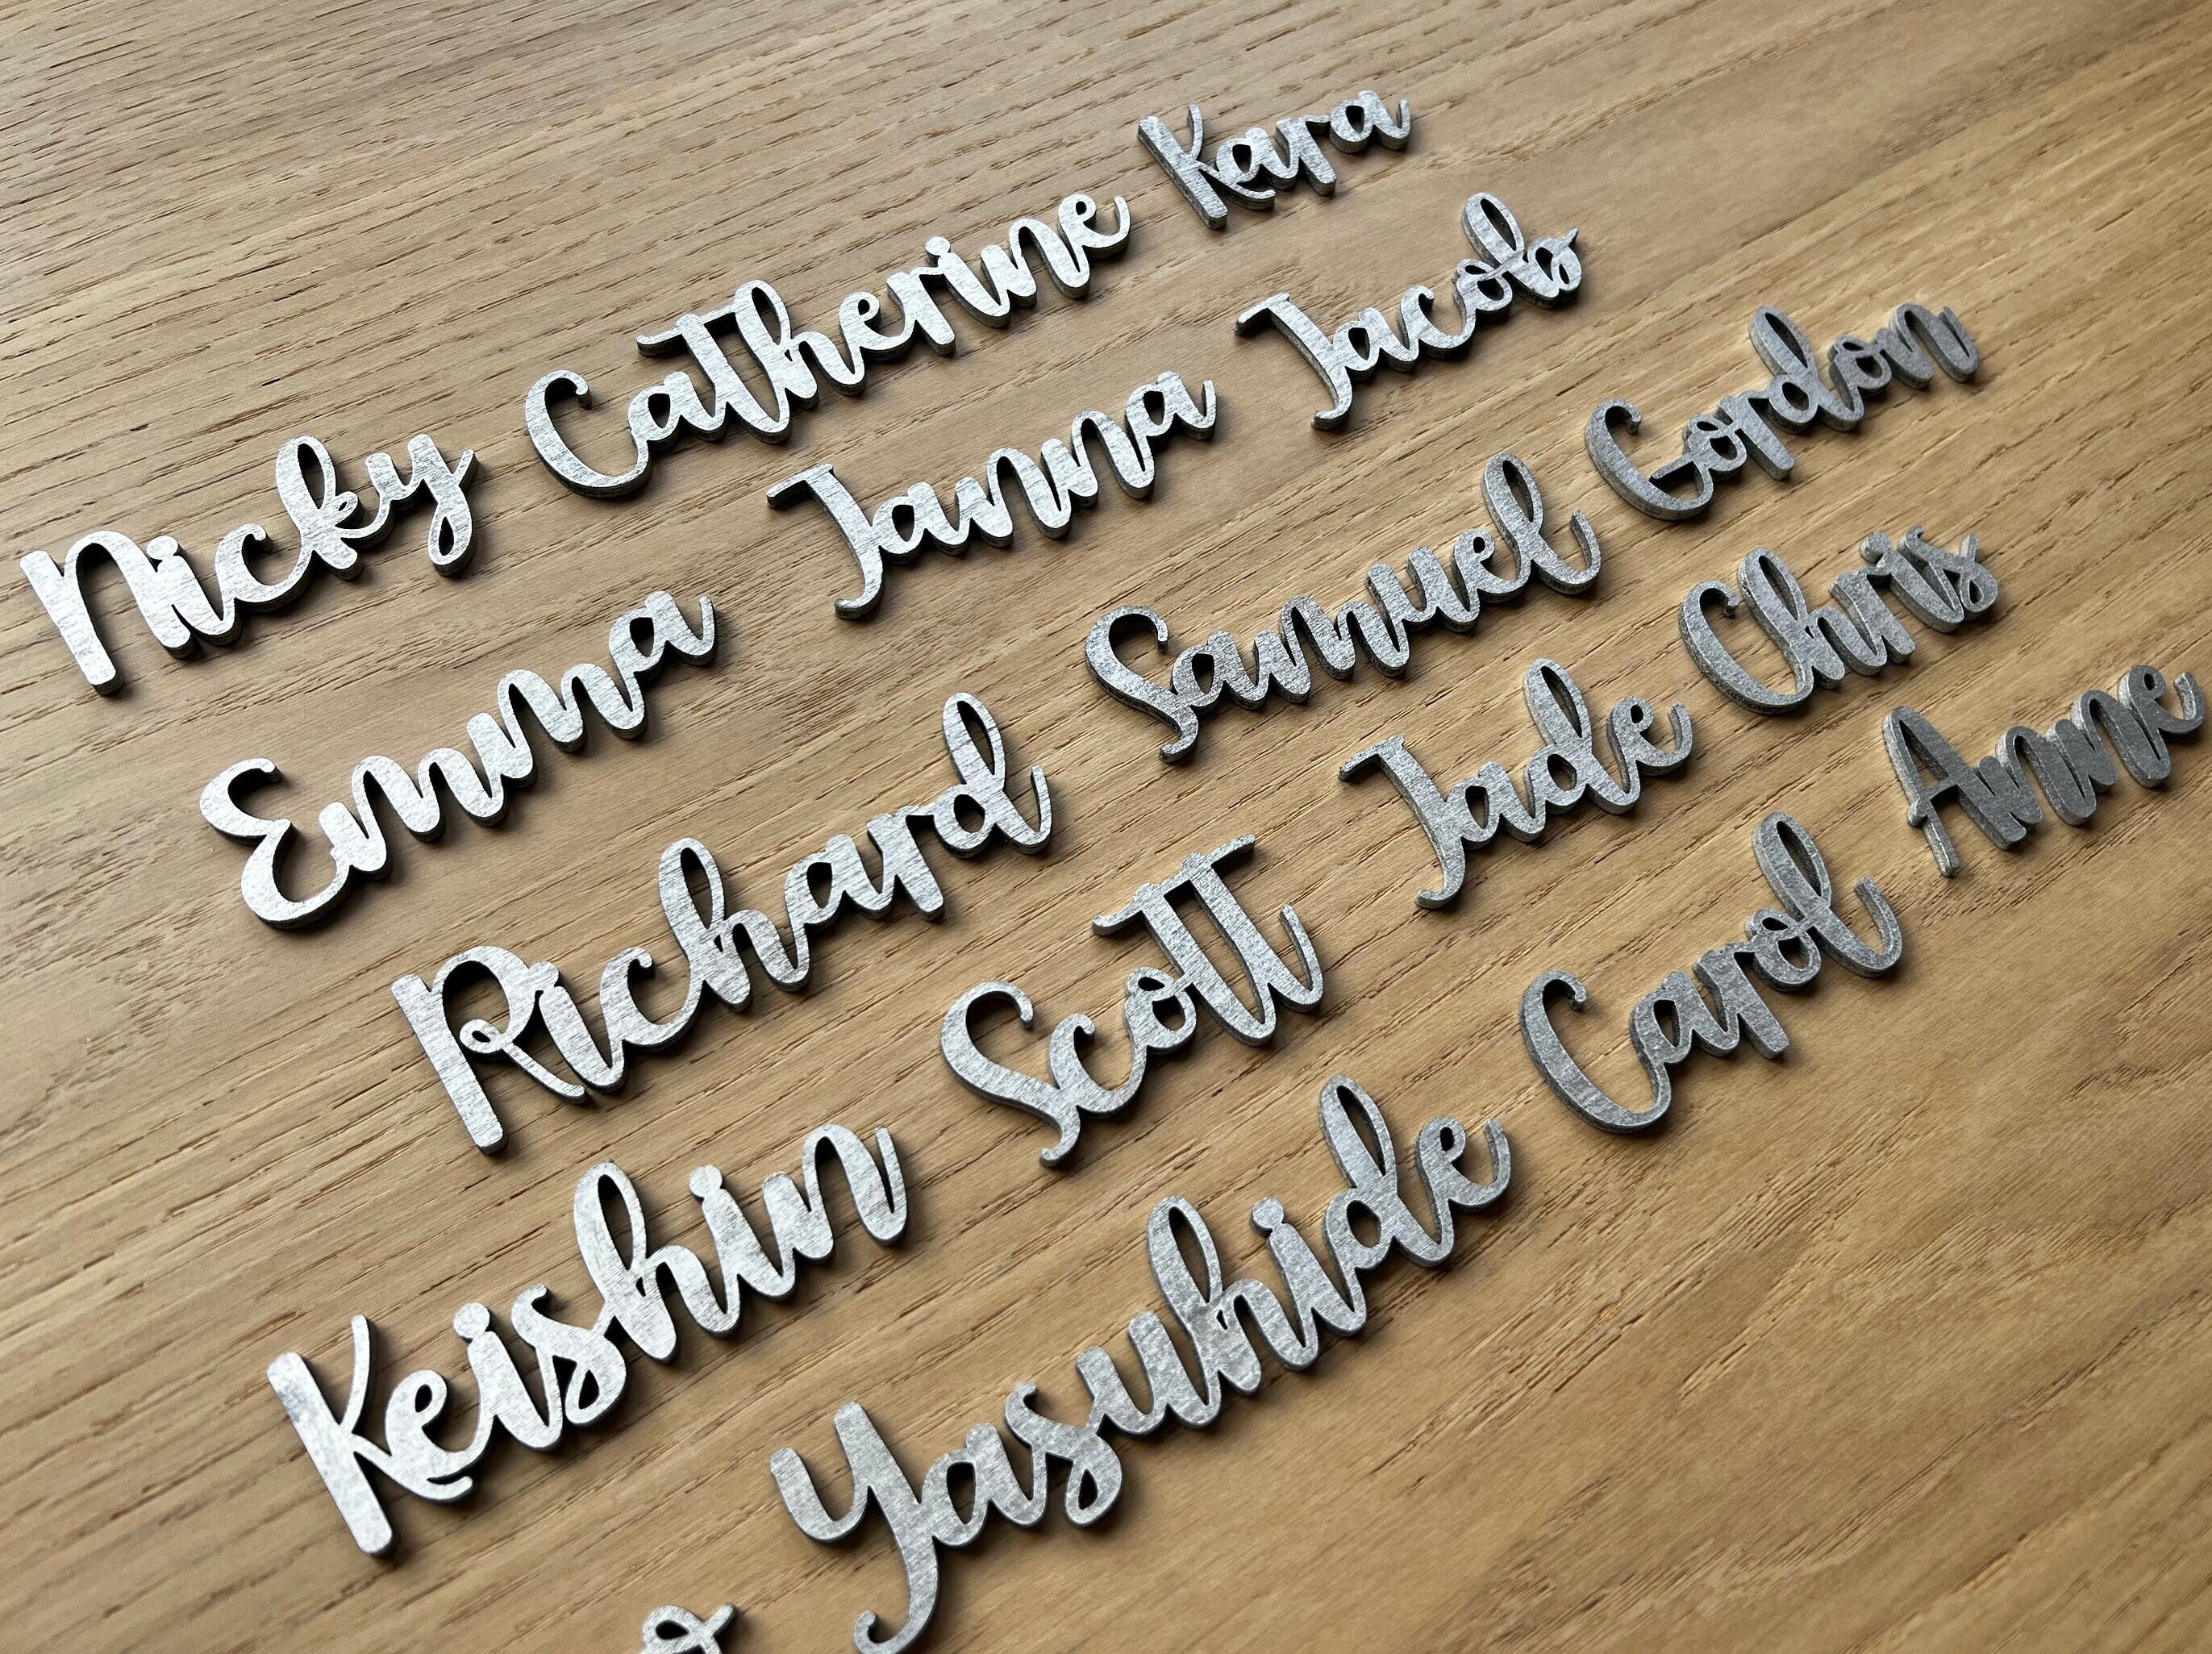 Nicky Catherine Kara
Emma Janna Jacob
Richard Samuel Gordon
Keishin Scott Jade Chris
Yasuhide Carol Anne